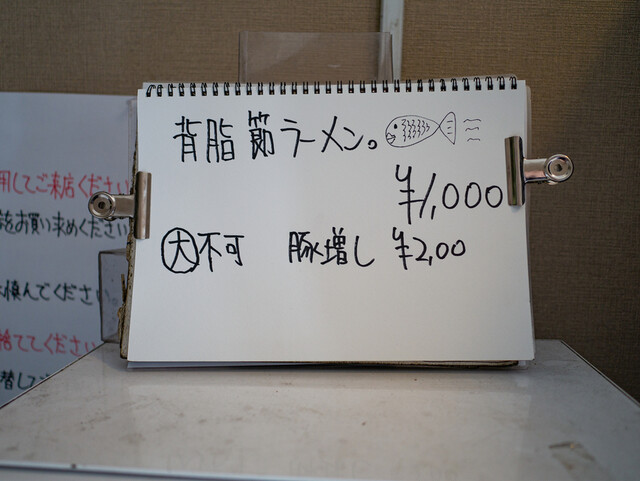 背脂節ラーメン。
¥1,000
大不可 豚増し ¥2,00
用してご来店ください
をお買い求めください
慎んでください。
捨ててください
替し